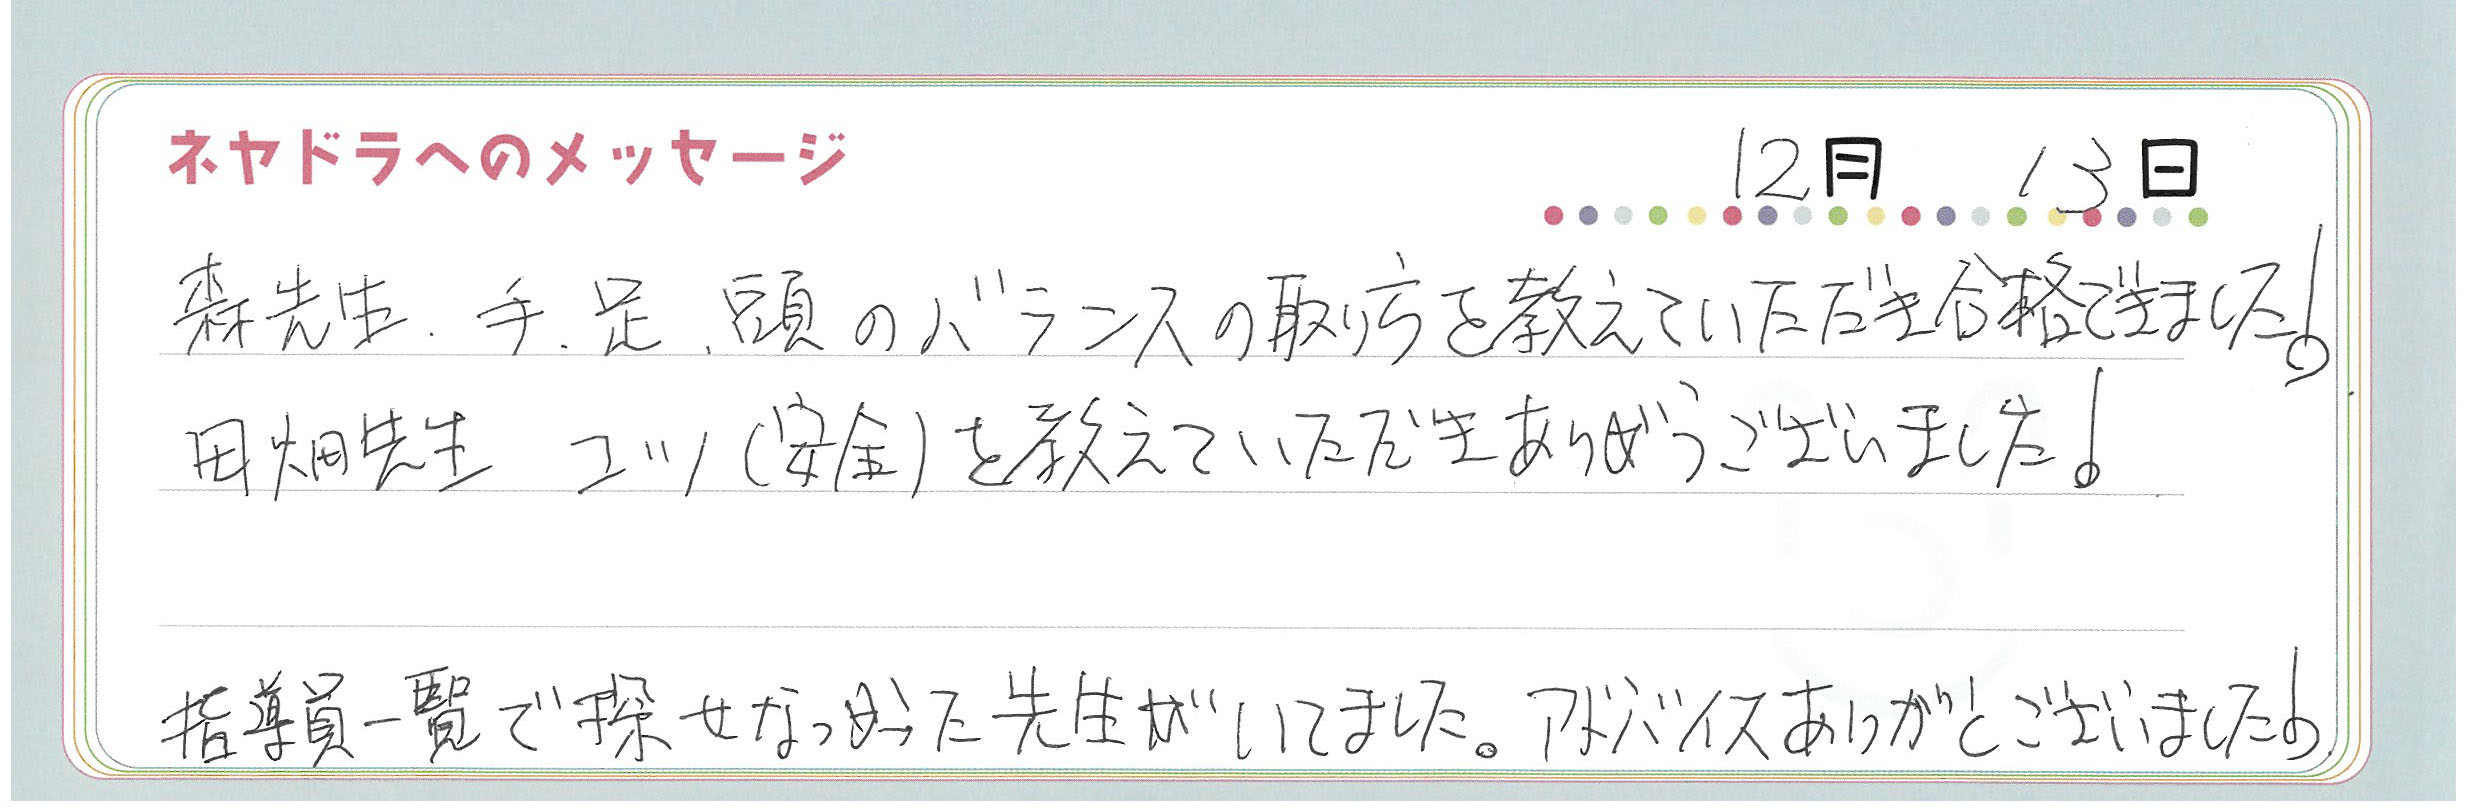 ネヤドラへのメッセージ
12月 13日
森先生、手、足、頭のバランスの取り方を教えていただき合格できました!
田畑先生 コツ(安全)を教えていただきありがとうございました!
指導員一覧で探せなかった先生がいてました。アドバイスありがとございました!